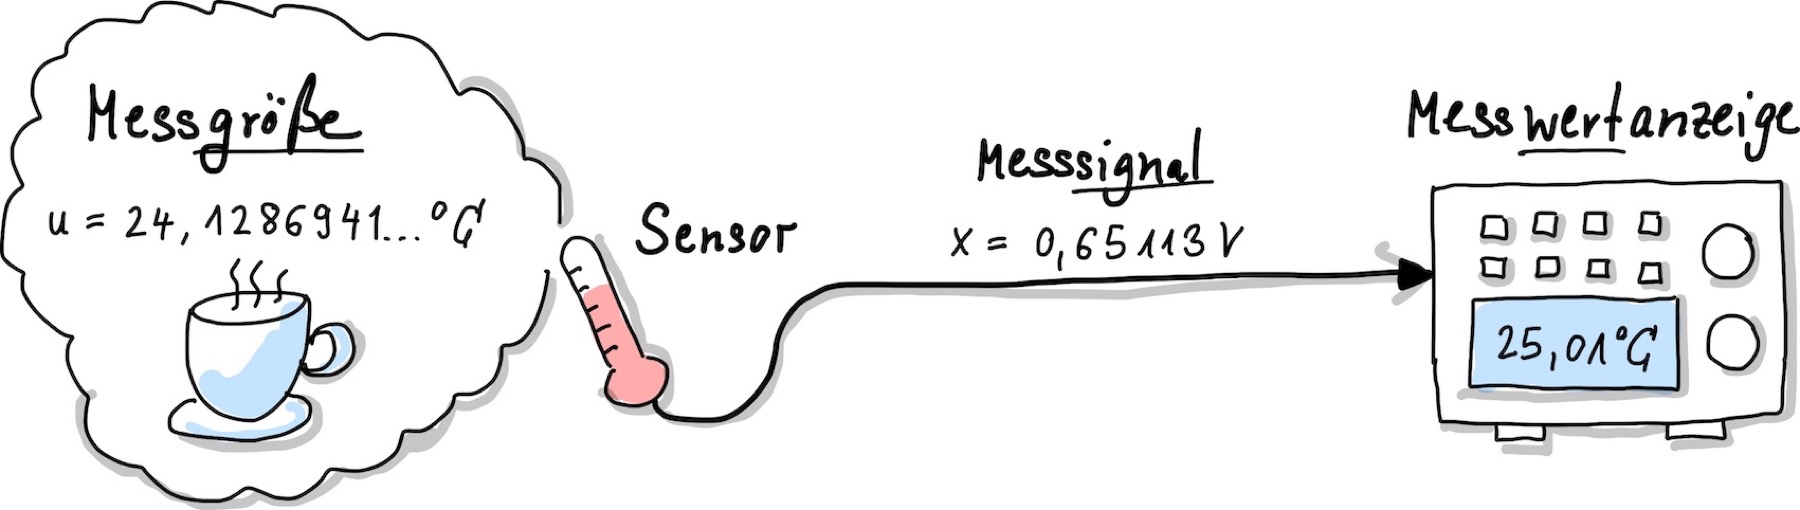 Messgröße
u = 24,1286941... °C
Sensor
Messsignal
x = 0,65113 V
Messwertanzeige
25,01°C